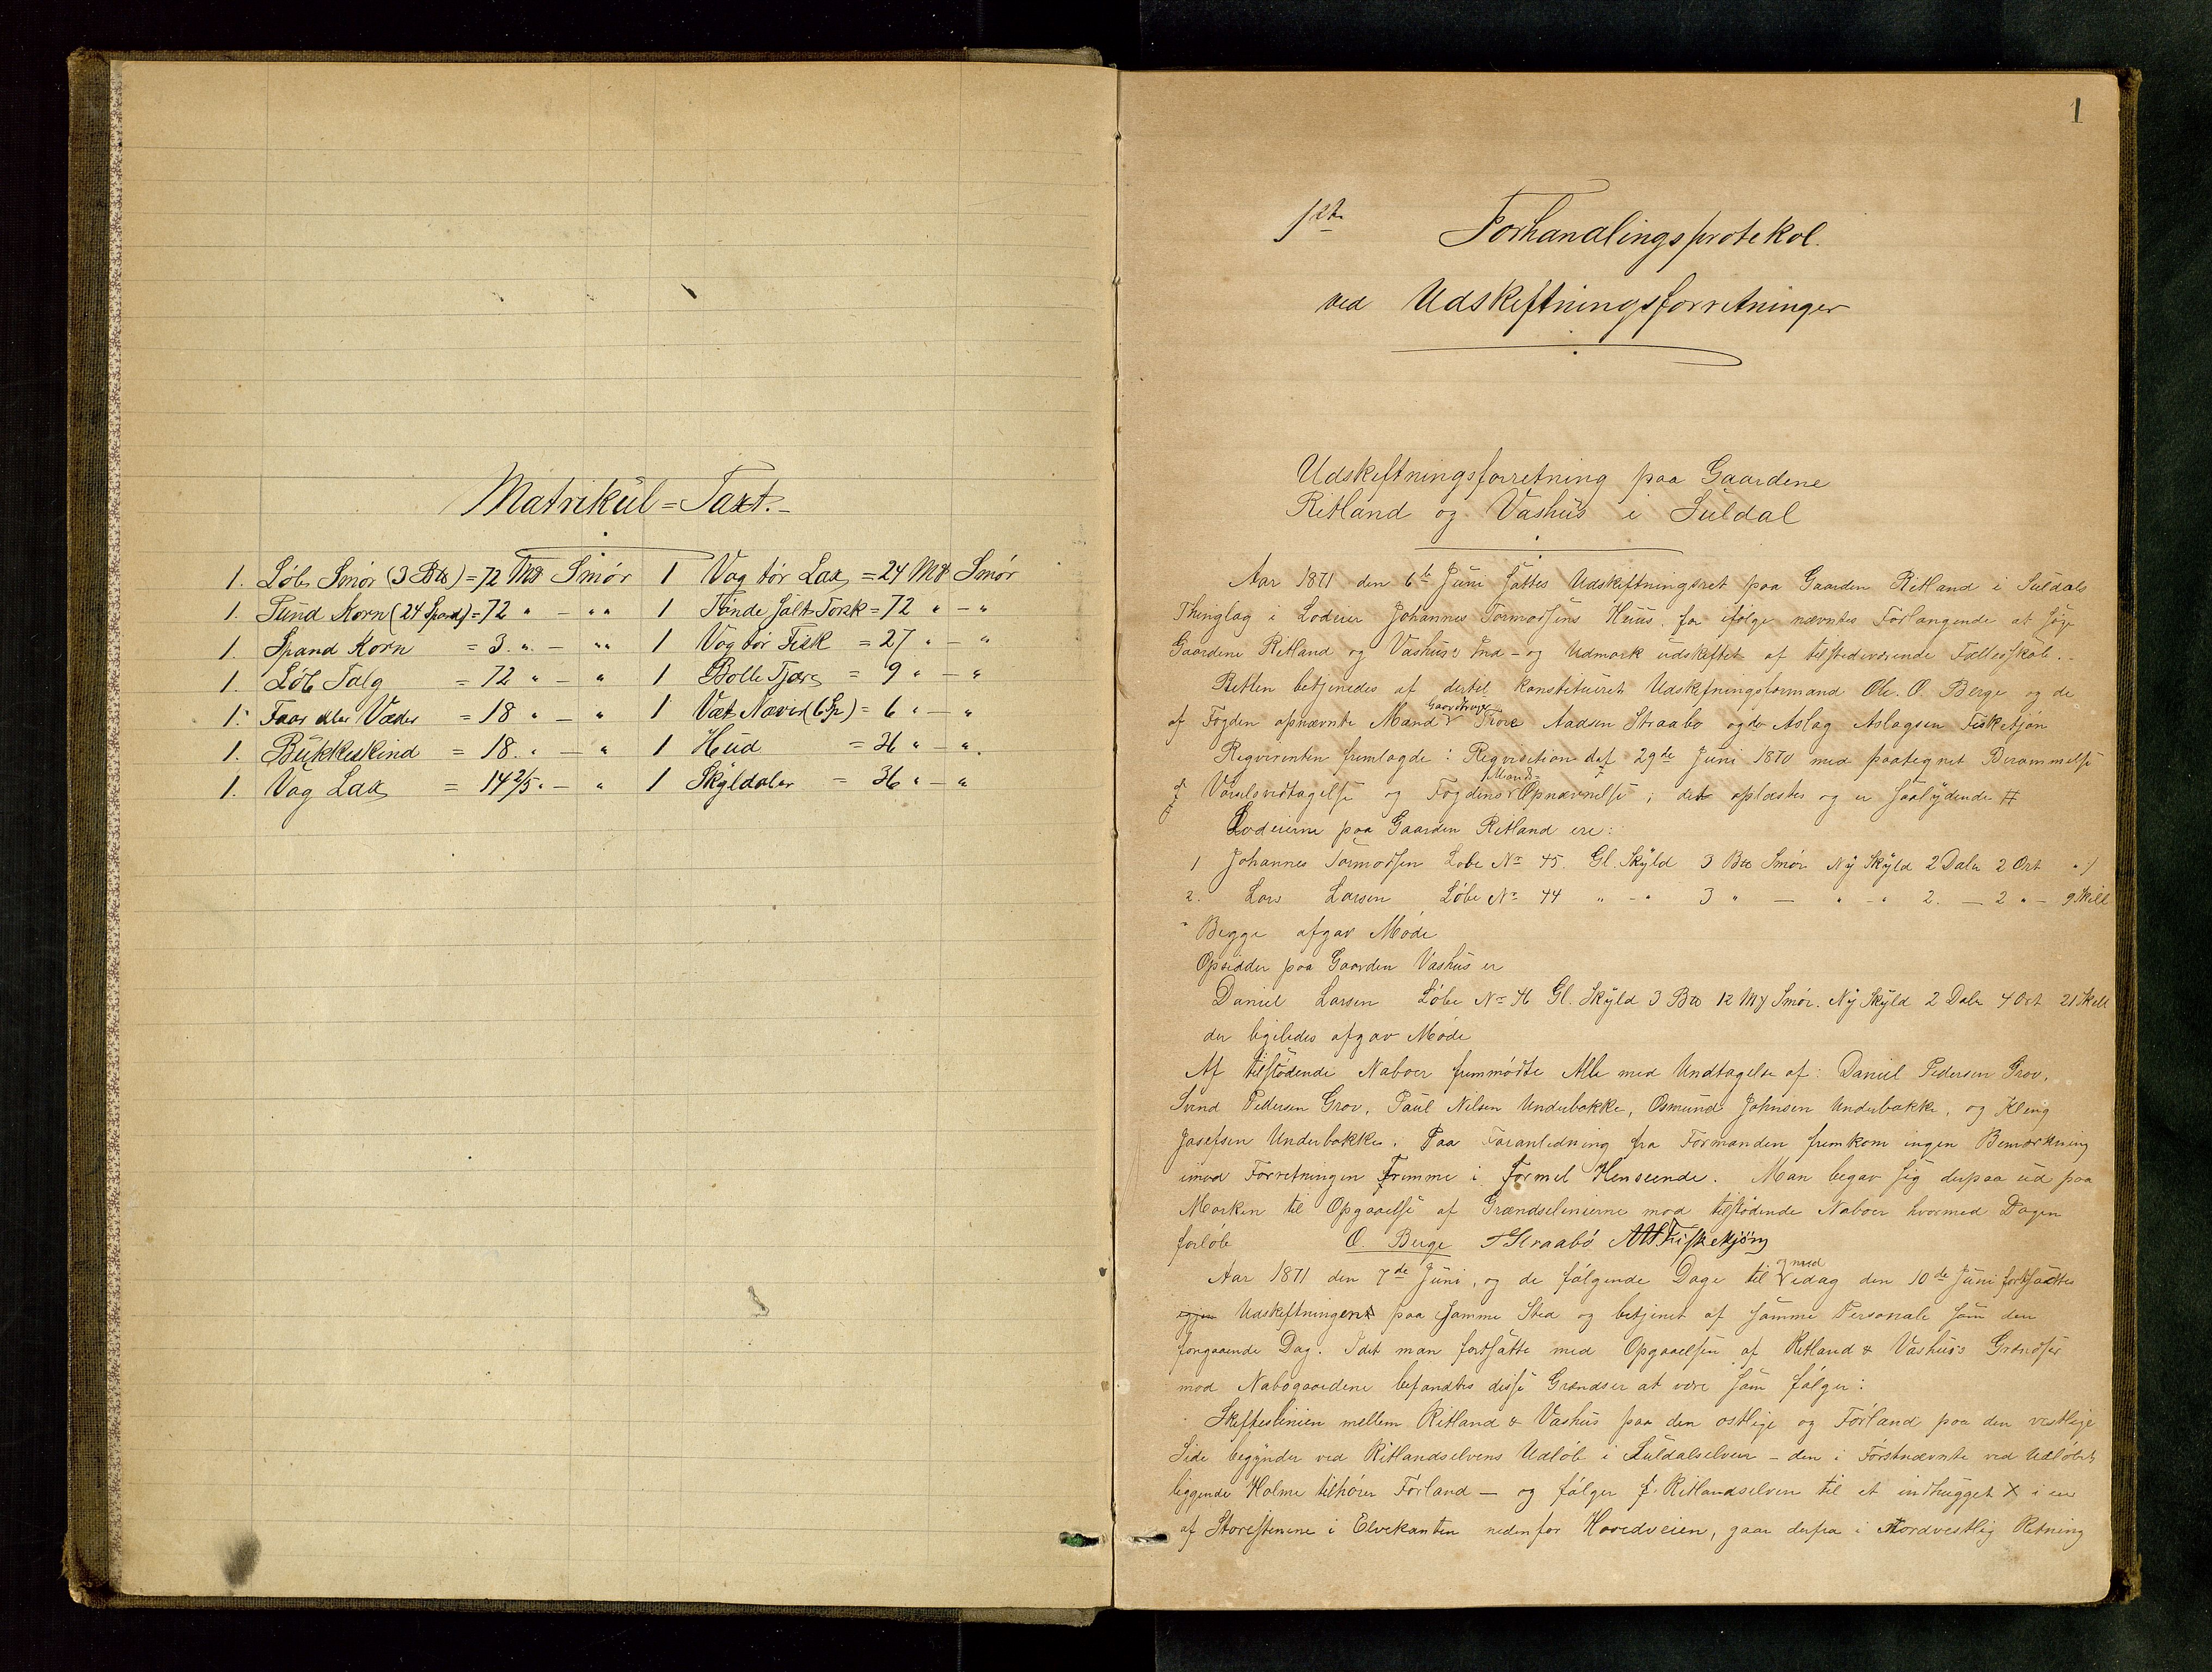 Matrikül=Taxt.-
1. Løb Smør (3 B℔) = 72 M℔ Smør 1 Vog tør Lax = 24 M℔ Smør
1. Pund Korn (24 Spand) = 72 " — " " 1 Tønde Salt Torsk = 72 " — "
1. Spand Korn = 3. " — " " 1 Vog tør Fisk = 27 " — "
1. Løb Talg = 72 " — " 1 Bolle Tjære = 9 " — "
1. Faar eller Væder = 18 " — " 1 Væt Næver (6 Sp) = 6 " — "
1. Bükkeskind = 18. " — " 1 Hüd = 36 " — "
1. Vog Lax = 14 2/5 " — " 1 Skÿldaler = 36 " — "
1
1ste Forhandlingsprotokol.
ved Udskiftningsforretninger
Udskiftningsforretning paa Gaardene
Ritland og Vashus i Süldal
Aar 1871 den 6te Juni sattes Udskiftningsret paa Gaarden Ritland i Suldals
Thinglag i Lodeier Johannes Tormodsens Huus, for ifølge nævntes Forlangende at søge
Gaardene Ritland og Vashus's Ind- og Udmark udskiftet af tilstedeværende Fællesskab.-
Retten betjenedes af dertil konstitueret Udskiftningsformand Ole. O. Berge og de
af Fogden opnævnte Mænd Gaardbruger Tore Aadsen Straabø og do Aslag Aslagsen Fisketjøn
Reqvirenten fremlagde: Reqvisition daf 29de Juni 1870 med paategnet Berammelse
Varselsvedtagelse og Fogdens Mænds-Opnævnelse; det oplæstes og er saalydende #
Lodeierne paa Gaarden Ritland ere:
1 Johannes Tormodsen Løbe No 45. Gl. Skÿld 3 B℔ Smør Nÿ Skÿld 2 Daler 2 Ort "
2. Lars Larsen Løbe No 44 " - " 3 " — " - " 2. — 2 " — 9 Skill
Begge afgav Møde
Opsidder paa Gaarden Vashus er
Daniel Larsen Løbe No 46 Gl. Skÿld 3 B℔ 12 M℔ Smør. Nÿ Skÿld 2 Daler 4 Ort 21 Skill
der ligeledes afgav Møde
Af tilstødende Naboer fremmødte Alle med Undtagelse af: Daniel Pedersen Grov,
Svend Pedersen Grov, Paül Nilsen Underbakke, Osmund Johnsen Underbakke, og Kleng
Josefsen Underbakke. Paa Foranledning fra Formanden fremkom ingen Bemærkning
imod Forretningen Fremme i Formel Henseende. Man begav sig derpaa ud paa
Marken til Opgaaelse af Grændselinierne mod tilstødende Naboer hvormed Dagen
forløb O. Berge T Straabø AAFiskekjøn
Aar 1871 den 7de Juni, og de følgende Dage til og med idag den 10de Juni fortsattes
Udskiftningen paa samme Sted og betjent af samme Personale som den
forgaaende Dag. Idet man fortsatte med Opgaaelsen af Ritland & Vashus's Grændser
mod Nabogaardene befandtes disse Grændser at være som følger:
Skiftelinien mellem Ritland & Vashus paa den østlige og Førland paa den vestlige
Side begÿnder ved Ritlandselvens Udløb i Süldalselven - den i Førstnævnte ved Udløbet
liggende Holme tilhører Førland — og følger s. Ritlandselven til et indhugget X i en
af Storestenene i Elvekanten nedenfor Hovedveien, gaar derfra i Nordvestlig Retning